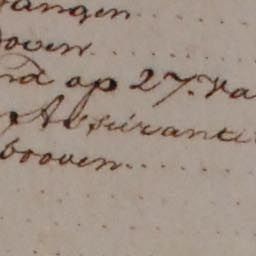 angen
boven
nd op 27. Va
Assurantie
booven